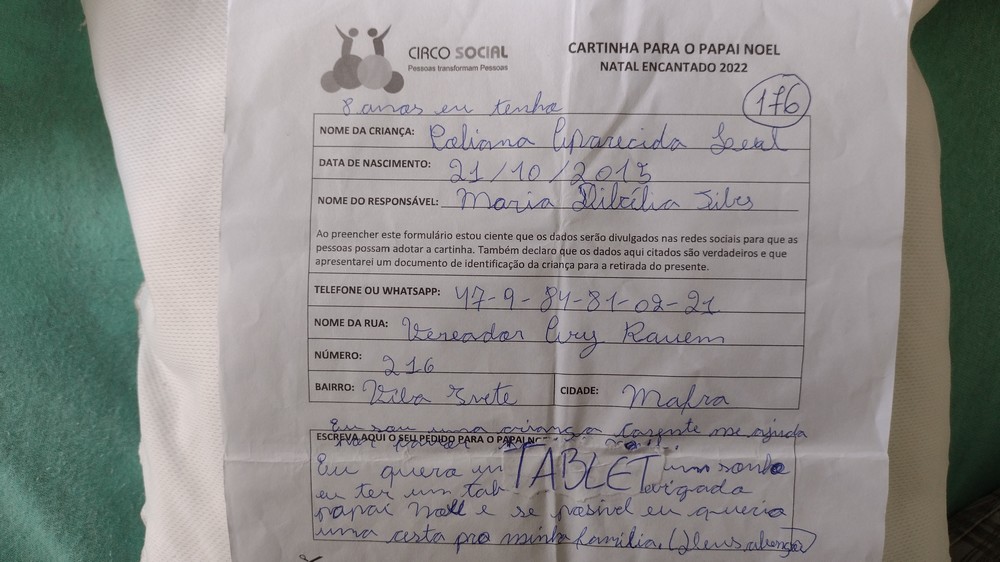 CIRCO SOCIAL
Pessoas transformam Pessoas
CARTINHA PARA O PAPAI NOEL
NATAL ENCANTADO 2022
176
8 anos eu tenho
NOME DA CRIANÇA: Poliana Aparecida Leal
DATA DE NASCIMENTO: 21/10/2013
NOME DO RESPONSÁVEL: Maria
Ao preencher este formulário estou ciente que os dados serão divulgados nas redes sociais para que as
pessoas possam adotar a cartinha. Também declaro que os dados aqui citados são verdadeiros e que
apresentarei um documento de identificação da criança para a retirada do presente.
TELEFONE OU WHATSAPP: 47-9-84-81-02-21
NOME DA RUA: Vereador Ary
NÚMERO: 216
BAIRRO: Vila Ivete CIDADE: Mafra
Eu sou uma criança carente me ajuda
ESCREVA AQUI O SEU PEDIDO PARA O PAPAI
Eu quera um TABLET sonho
eu ter um tab
papai Noel e se posivel eu queria
uma cesta pra minha família. (Deus abençoe)